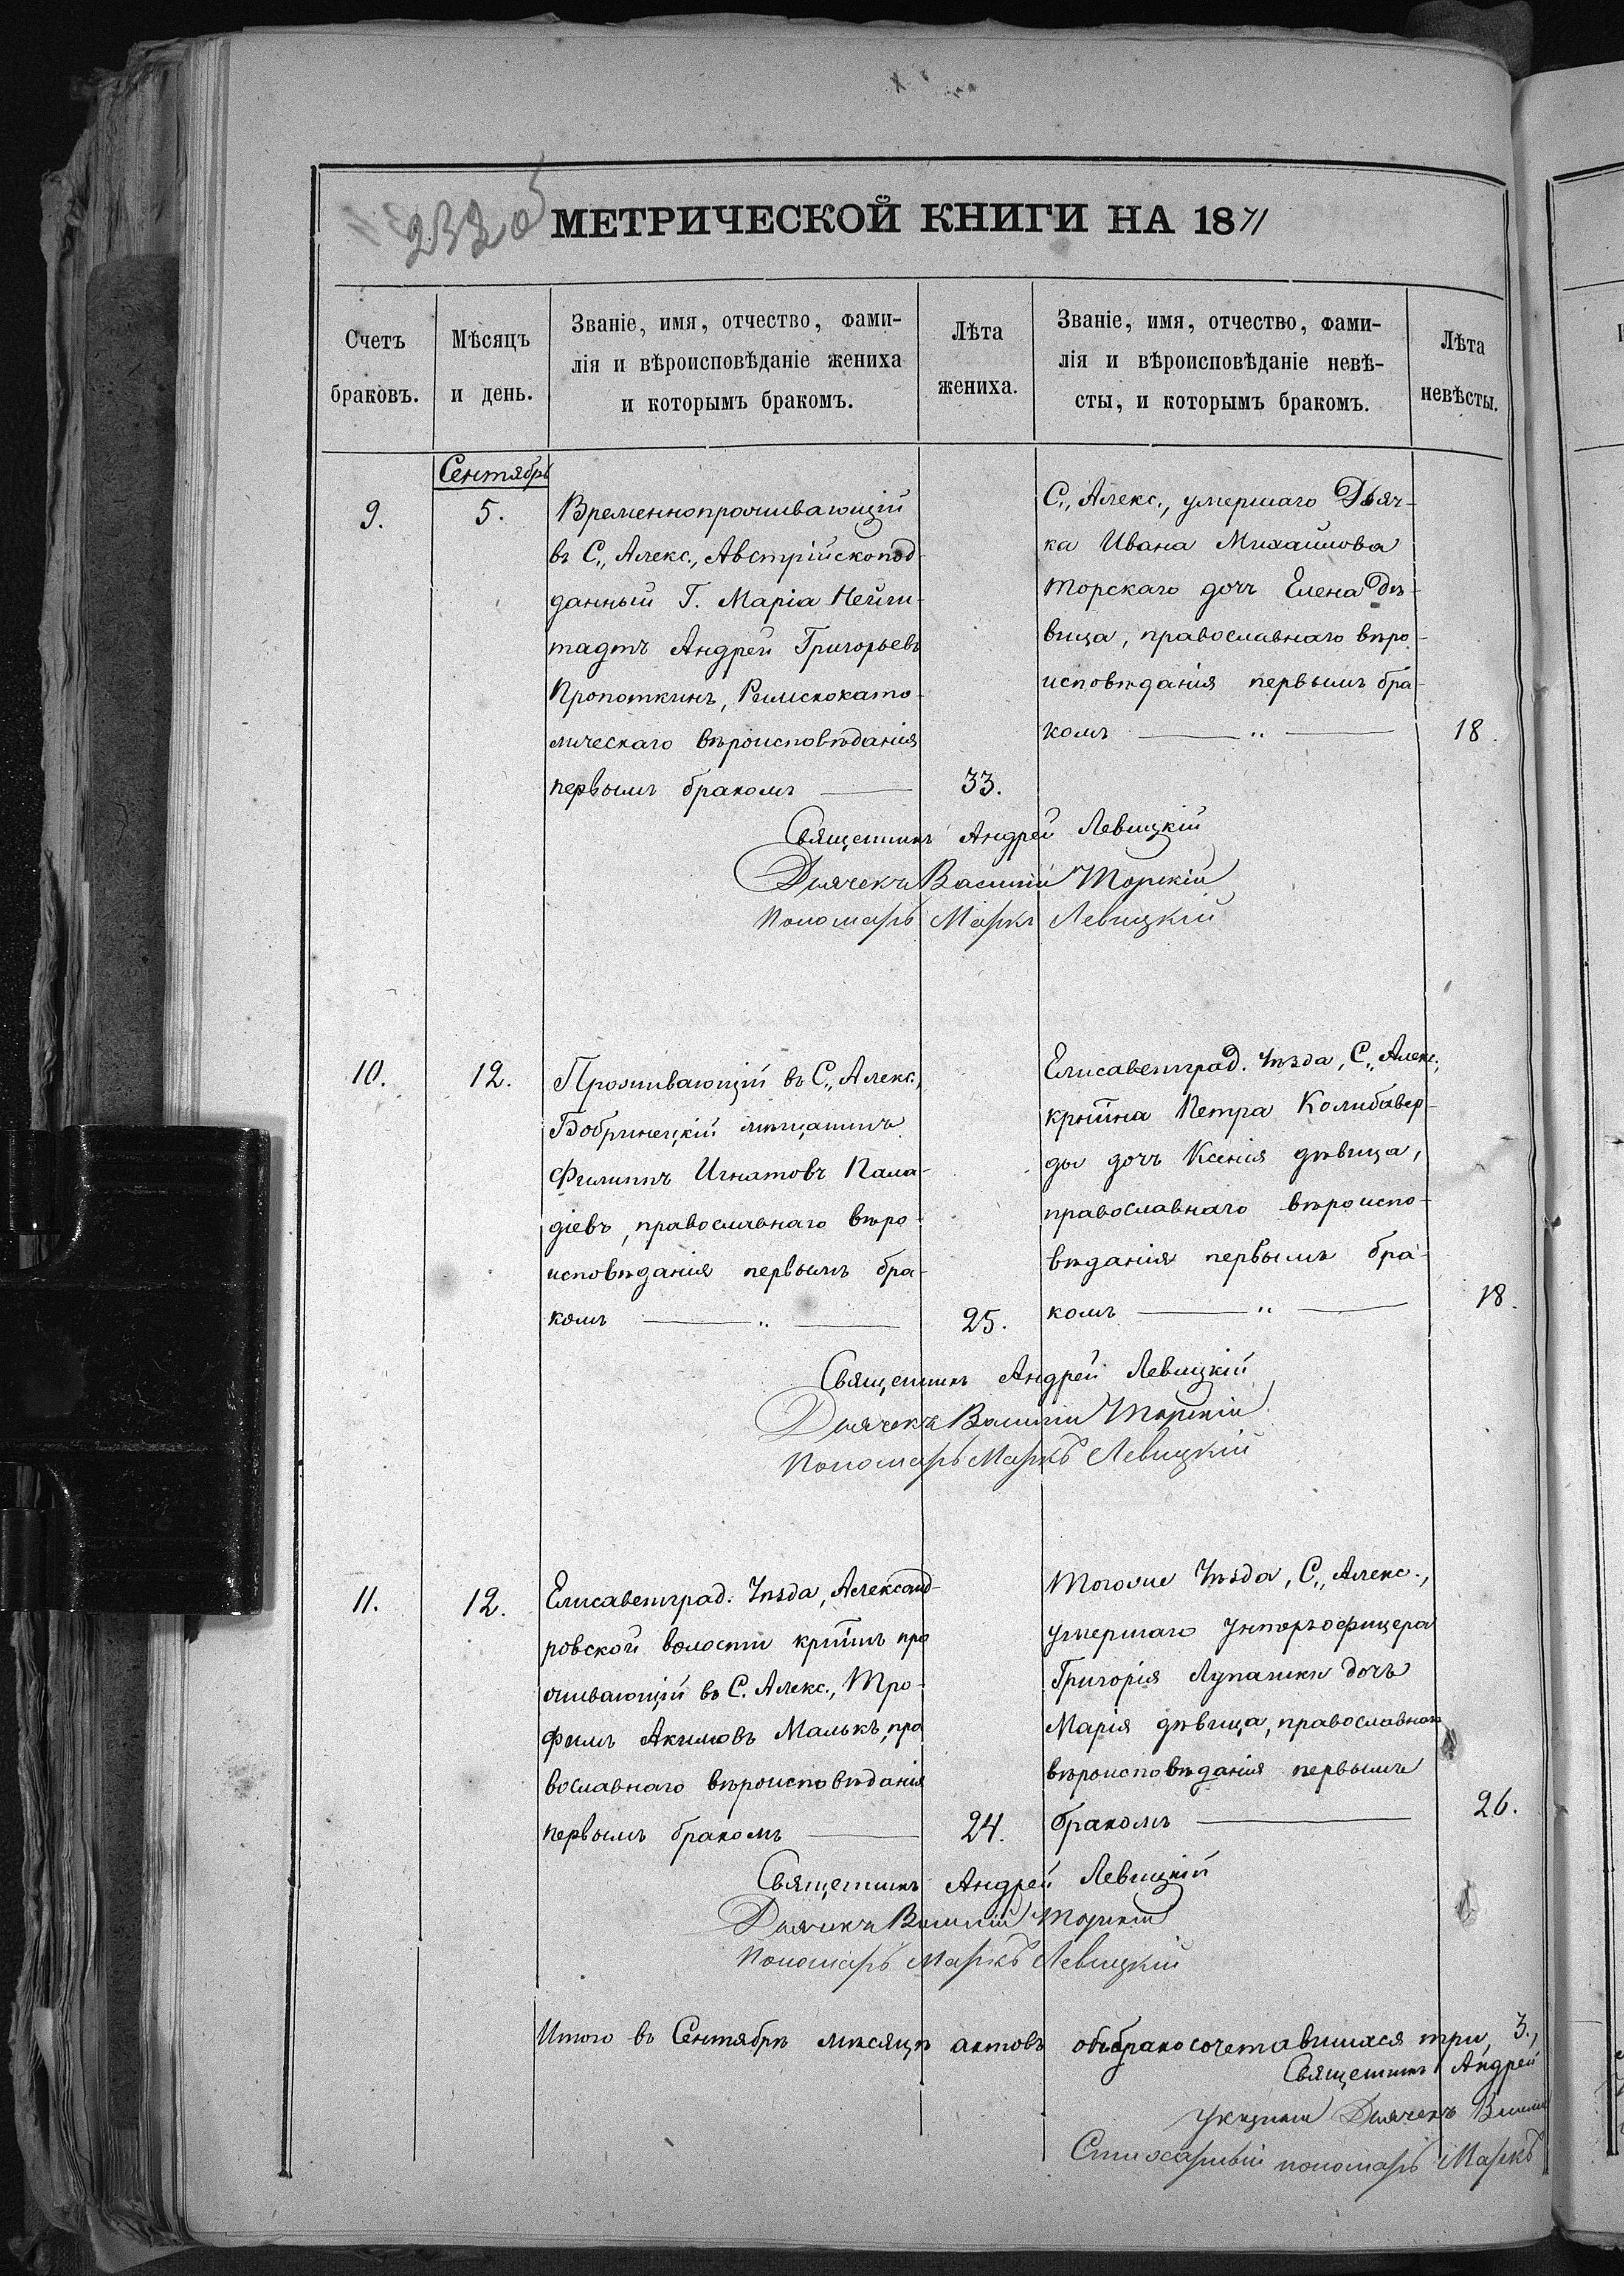 232 об
МЕТРИЧЕСКОЙ КНИГИ НА 1871
Счетъ браковъ.
Мѣсяцъ и день.
Званіе, имя, отчество, фами-
лія и вѣроисповѣданіе жениха
и которымъ бракомъ.
Лѣта жениха.
Званіе, имя, отчество, фами-
лія и вѣроисповѣданіе невѣ-
сты, и которымъ бракомъ.
Лѣта невѣсты.
Сентябрь
9.
5.
Временнопроживающій
въ С., Алекс., Австрійскопод-
данный Г. Марія Нейш-
тадтъ Андрей Григорьевъ
Пропоткинъ, Римскокато-
лическаго вѣроисповѣданія
первымъ бракомъ
33.
С., Алекс., умершаго Дьяч-
ка Ивана Михайлова
Торскаго дочь Елена дѣ-
вица, православнаго вѣро-
исповѣданія первымъ бра-
комъ
18.
Священникъ Андрей Левицкій
Дьячекъ Василій Торскій
Пономарь Маркъ Левицкій
10.
12.
Проживающій въ С., Алекс.,
Бобринецкій мѣщанинъ
Филиппъ Игнатовъ Пала-
діевъ, православнаго вѣро-
исповѣданія первымъ бра-
комъ
25.
Елисаветград. Уѣзда, С., Алекс.,
крнина Петра Колибабер-
ды дочь Ксенія дѣвица,
православнаго вѣроиспо-
вѣданія первымъ бра-
комъ
18.
Священникъ Андрей Левицкій
Дьячекъ Василій Торскій
Пономарь Маркъ Левицкій
11.
12.
Елисаветград. Уѣзда, Александ-
ровской волости крнинъ про
живающій въ С. Алекс., Тро-
фимъ Акимовъ Малькъ, пра
вославнаго вѣроисповѣданія
первымъ бракомъ
24.
Тогоже Уѣзда, С., Алекс.,
умершаго Унторъофицера
Григорія Лупашки дочь
Марія дѣвица, православнаго
вѣроисповѣданія первымъ
бракомъ
26.
Священникъ Андрей Левицкій
Дьячекъ Василій Торскій
Пономарь Маркъ Левицкій
Итого въ Сентябрѣ мѣсяцѣ актовъ обракосочетавшихся три, 3.,
Священникъ Андрей
Указный Дьячекъ Василій
Стихарный пономарь Маркъ